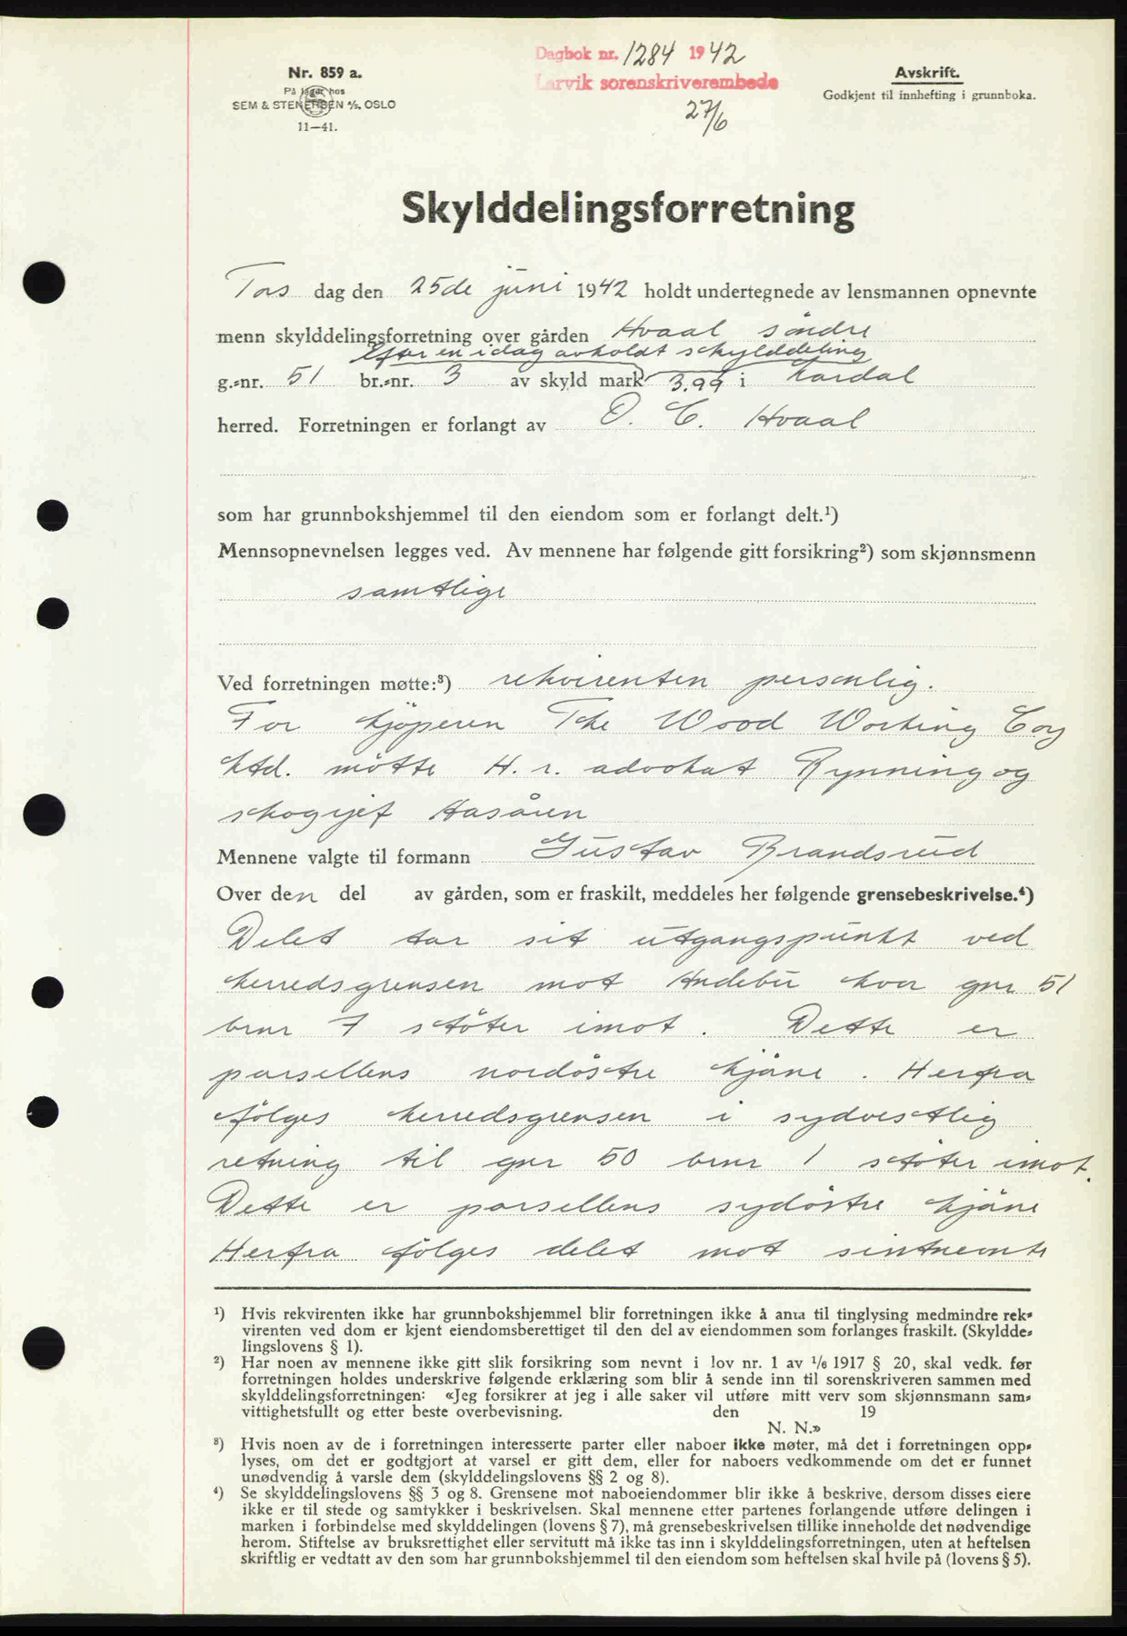 Nr. 859 a.
På lager hos
SEM & STENERSEN A/S. OSLO
11—41.
Dagbok nr. 1284 1942
Larvik sorenskriverembede
27/6
Avskrift.
Godkjent til innhefting i grunnboka.
Skylddelingsforretning
Tors dag den 25de juni 1942 holdt undertegnede av lensmannen opnevnte
menn skylddelingsforretning over gården Hvaal söndre
efter en idag avholdt skylddeling
g.-nr. 51 br.-nr. 3 av skyld mark 3.99 i Lardal
herred. Forretningen er forlangt av O. C. Hvaal
som har grunnbokshjemmel til den eiendom som er forlangt delt.¹)
Mennsopnevnelsen legges ved. Av mennene har følgende gitt forsikring²) som skjønnsmenn
samtlige
Ved forretningen møtte:³) rekvirenten personlig.
For kjöperen The Wood Working Coy
Ltd. mötte H. r. advokat Rynning og
skogsjef Hasåsen
Mennene valgte til formann Gustav Brandsrud
Over den del av gården, som er fraskilt, meddeles her følgende grensebeskrivelse.⁴)
Delet tar sit utgangspunkt ved
herredsgrensen mot Andebu hvor gnr 51
brnr 7 stöter imot. Dette er
parsellens nordöstre hjöne. Herfra
fölges herredsgrensen i sydvestlig
retning til gnr 50 brnr 1 stöter imot.
Dette er parsellens sydöstre hjöne
Herfra fölges delet mot sistnevnte
¹) Hvis rekvirenten ikke har grunnbokshjemmel blir forretningen ikke å anta til tinglysing medmindre rek-
virenten ved dom er kjent eiendomsberettiget til den del av eiendommen som forlanges fraskilt. (Skyldde-
lingslovens § 1).
²) Har noen av mennene ikke gitt slik forsikring som nevnt i lov nr. 1 av 1/6 1917 § 20, skal vedk. før
forretningen holdes underskrive følgende erklæring som blir å sende inn til sorenskriveren sammen med
skylddelingsforretningen: «Jeg forsikrer at jeg i alle saker vil utføre mitt verv som skjønnsmann sam-
vittighetsfullt og etter beste overbevisning. den 19
N. N.»
³) Hvis noen av de i forretningen interesserte parter eller naboer ikke møter, må det i forretningen opp-
lyses, om det er godtgjort at varsel er gitt dem, eller for naboers vedkommende om det er funnet
unødvendig å varsle dem (skylddelingslovens §§ 2 og 8).
⁴) Se skylddelingslovens §§ 3 og 8. Grensene mot naboeiendommer blir ikke å beskrive, dersom disses eiere
ikke er til stede og samtykker i beskrivelsen. Skal mennene etter partenes forlangende utføre delingen i
marken i forbindelse med skylddelingen (lovens § 7), må grensebeskrivelsen tillike inneholde det nødvendige
herom. Stiftelse av bruksrettighet eller servitutt må ikke tas inn i skylddelingsforretningen, uten at heftelsen
skriftlig er vedtatt av den som har grunnbokshjemmel til den eiendom som heftelsen skal hvile på (lovens § 5).